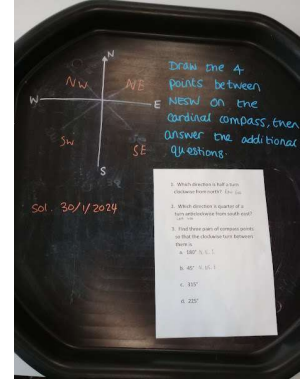 N
NW
NE
W
E
SW
SE
S
Draw the 4
points between
NESW on the
cardinal compass, then
answer the additional
questions.
Sol. 30/1/2024
1. Which direction is half a turn
clockwise from north?
2. Which direction is quarter of a
turn anticlockwise from south-east?
3. Find three pairs of compass points
so that the clockwise turn between
them is
a. 180°
b. 45°
c. 315°
d. 225°